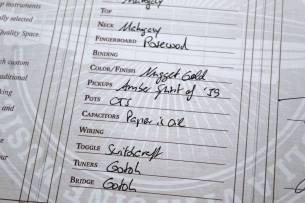 p instruments
ully selected
Quality Space.
ch custom
raditional
king
and
our
Top Mahogany
Neck Mahogany
Fingerboard Rosewood
Binding
Color/Finish Nugget Gold
Pickups Amber Spirit of '59
Pots CTS
Capacitors Paper in Oil
Wiring
Toggle Switchcraft
Tuners Gotoh
Bridge Gotoh